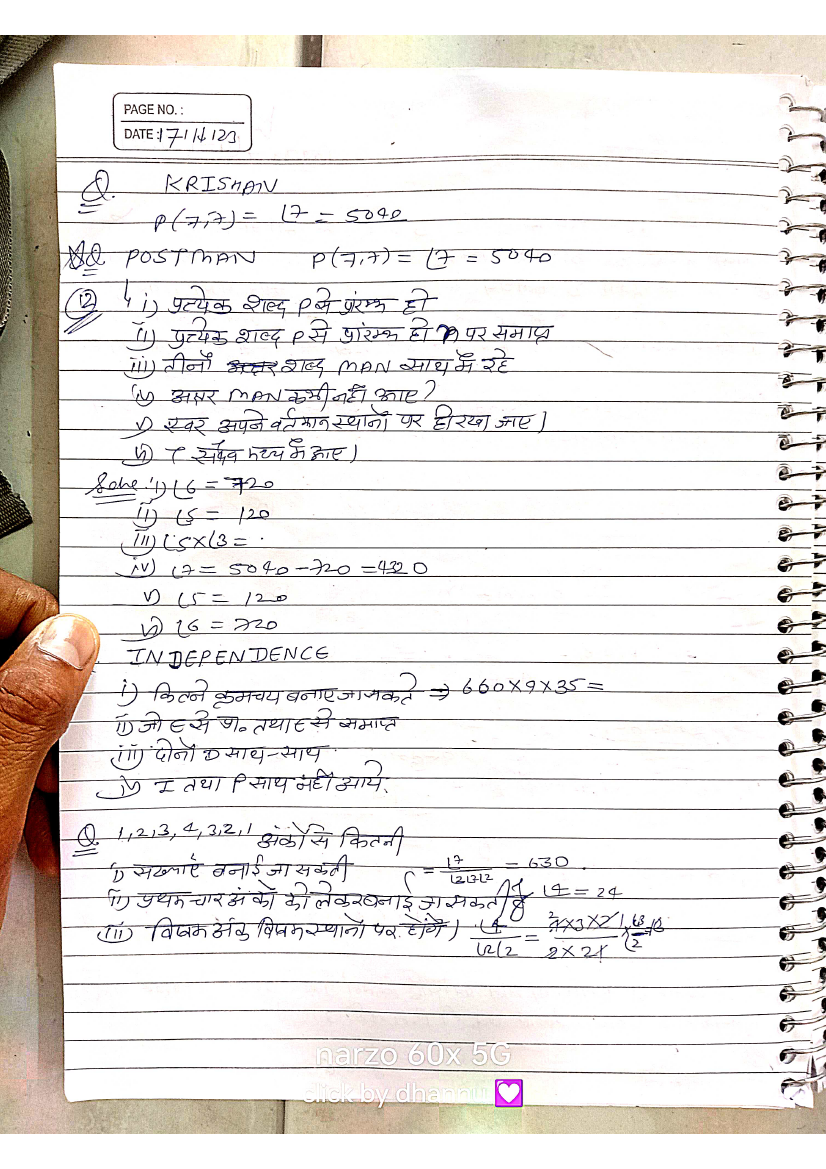 PAGE NO. :
DATE : 17/11/23
Q. KRISHAN
P(7,7) = ⌊7 = 5040
Q POSTMAN P(7,7) = ⌊7 = 5040
(12) i) प्रत्येक शब्द P से प्रारम्भ हो
ii) प्रत्येक शब्द P से प्रारम्भ हो n पर समाप्त
iii) तीनों शब्द MAN साथ में रहे
iv) अक्षर MAN कभी नहीं आए?
v) स्वर अपने वर्तमान स्थानों पर ही रखा जाए।
vi) T सदैव मध्य में आए।
Solve :- i) ⌊6 = 720
ii) ⌊5 = 120
iii) ⌊5×⌊3 =
iv) ⌊7 = 5040 - 720 = 4320
v) ⌊5 = 120
vi) ⌊6 = 720
INDEPENDENCE
i) कितने क्रमचय बनाए जा सकते ⇒ 660×9×35 =
ii) जो E से प्रा० तथा E से समाप्त
iii) दोनों D साथ-साथ
iv) I तथा P साथ नहीं आये.
Q 1,2,3,4,3,2,1 अंकों से कितनी
i) संख्याएँ बनाई जा सकती = ⌊7/⌊2⌊2⌊2 = 630.
ii) प्रथम चार अंकों को लेकर बनाई जा सकती ⌊4 = 24
iii) विषम अंक विषम स्थानों पर होंगे। ⌊4/⌊2⌊2 = 4×3×2×1/2×2×1 × ⌊3/⌊2
narzo 60x 5G
click by dhannu 💟